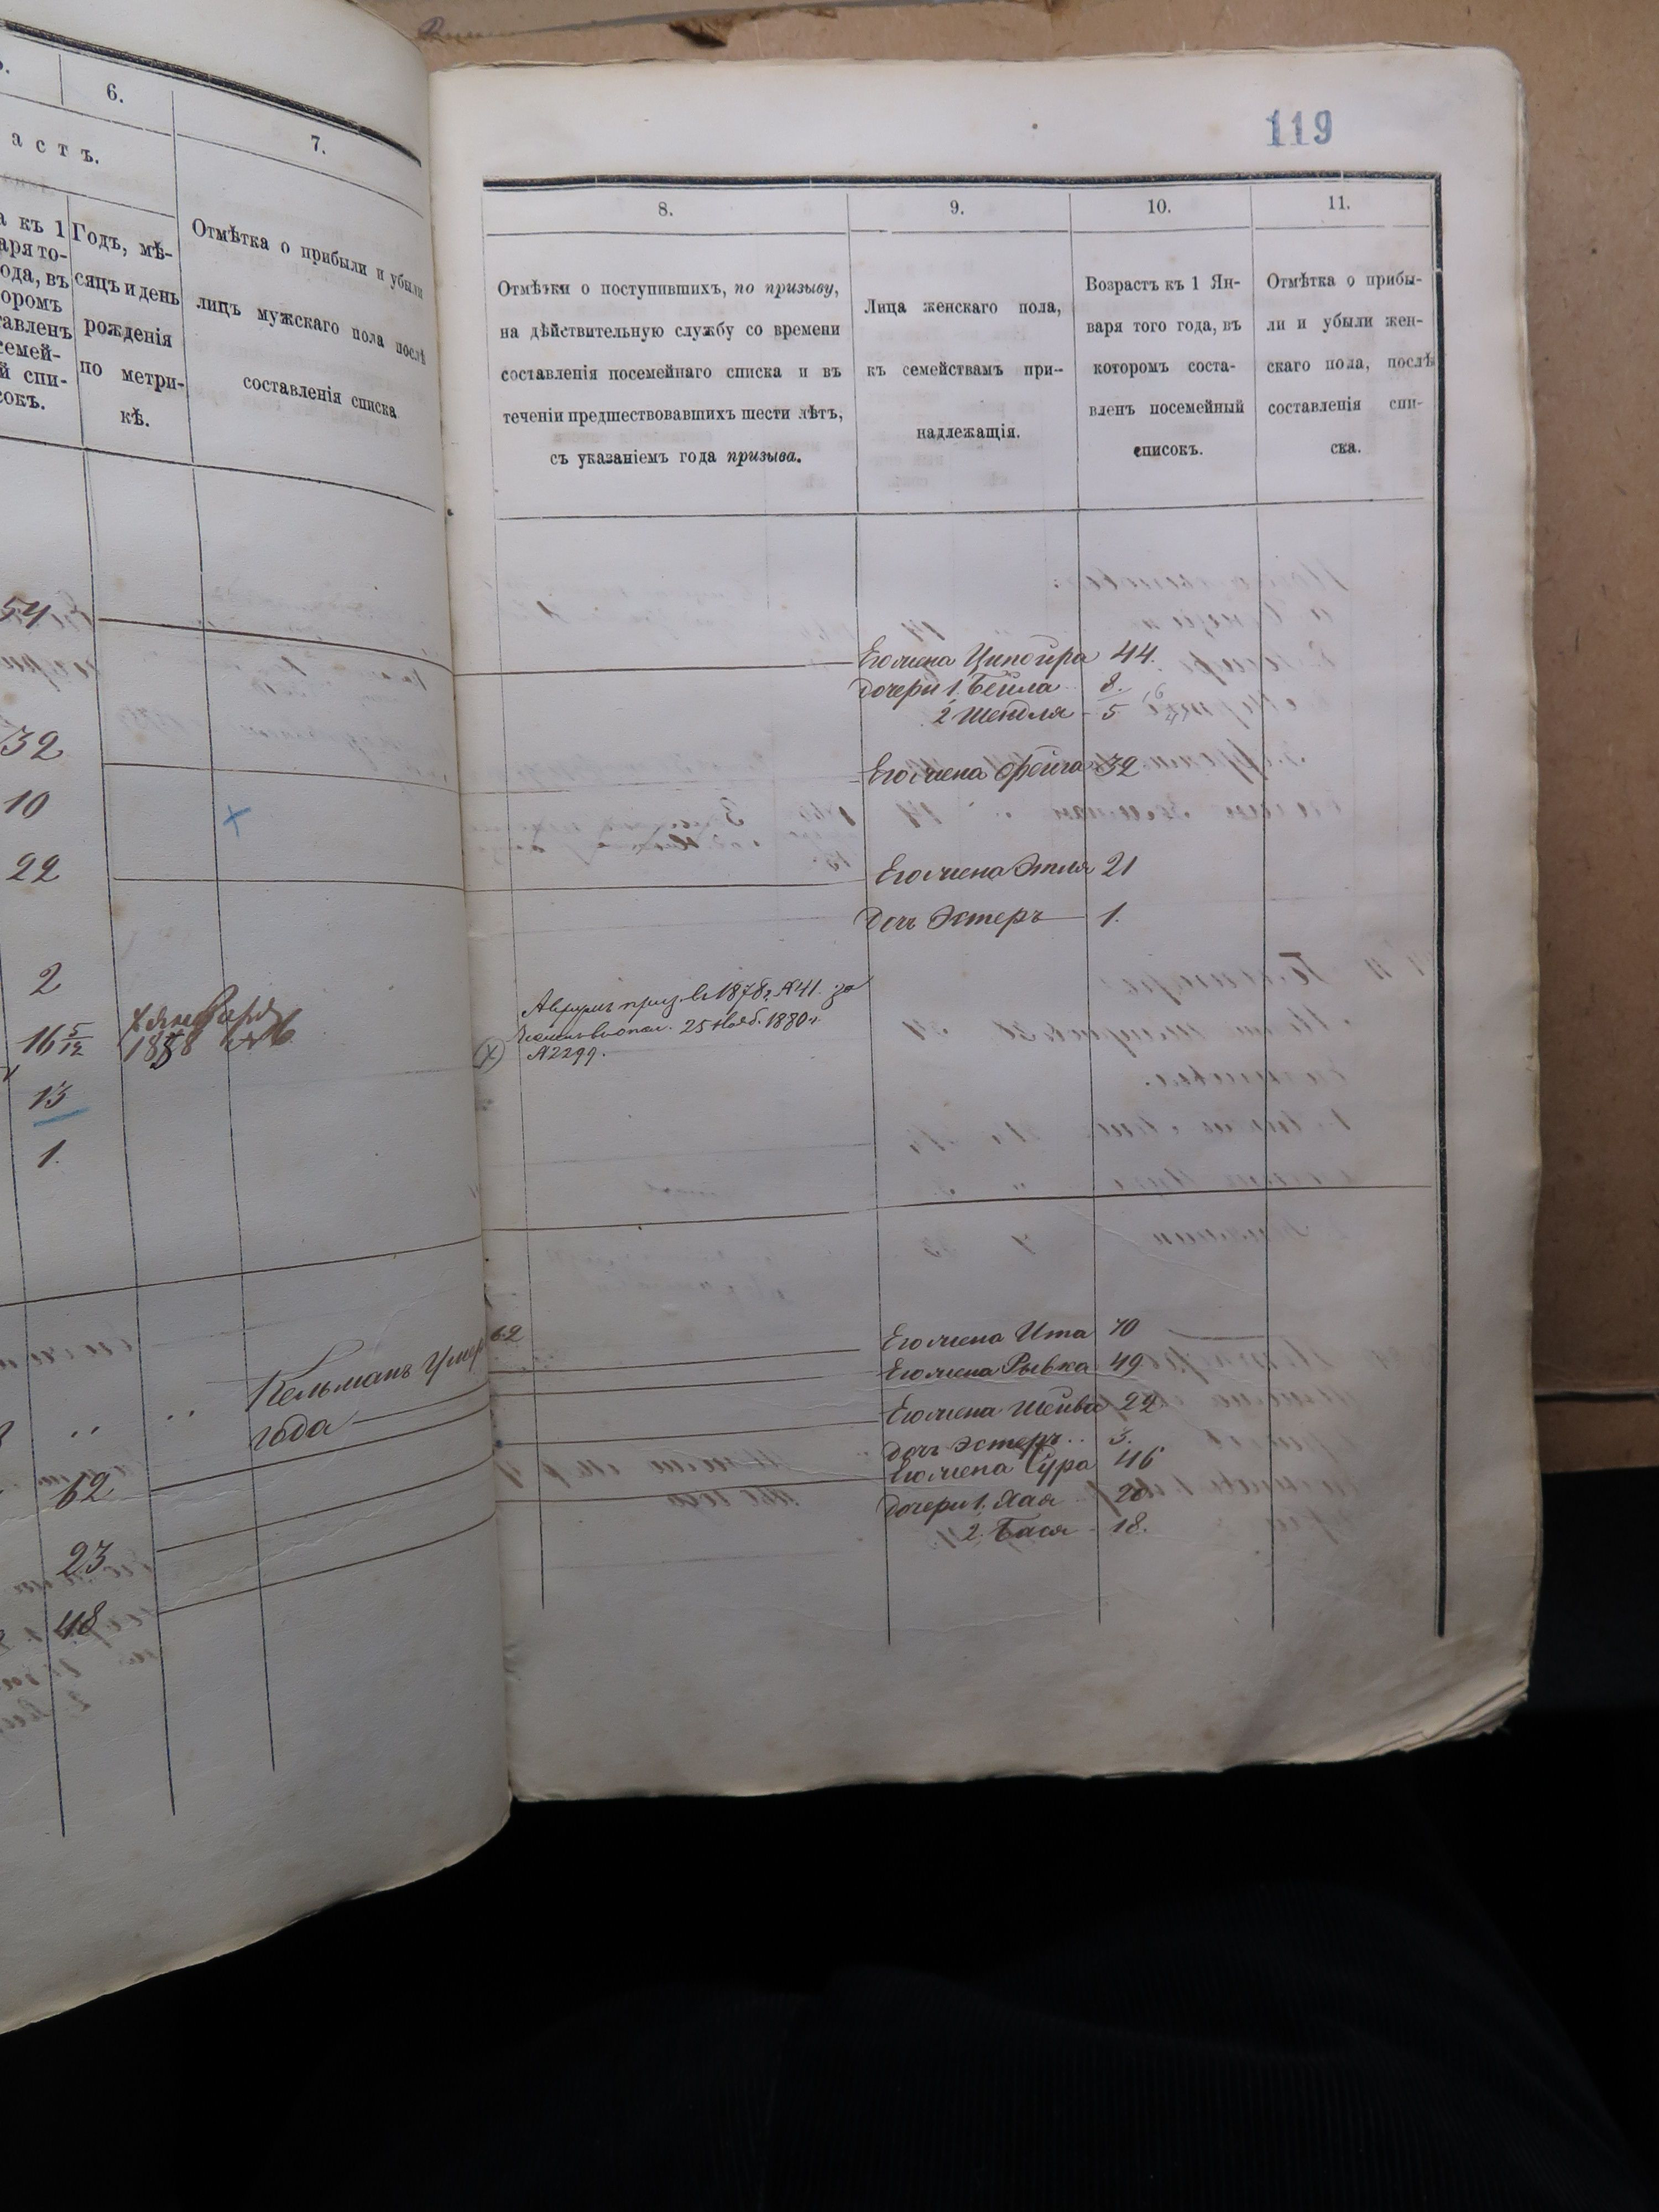 6.
7.
а с т ъ.
а къ 1
аря то-
ода, въ
ором­ъ
тавленъ
семей-
й спи-
сокъ.
Годъ, мѣ-
сяцъ и день
рожденія
по метри-
кѣ.
Отмѣтка о прибыли и убыли
лицъ мужскаго пола послѣ
составленія списка
54
32
10
22
2
16 5/12
января
1858 №6
13
1.
Кельманъ умер
года
62
23
48
119
8.
9.
10.
11.
Отмѣтки о поступившихъ, по призыву,
на дѣйствительную службу со времени
составленія посемейнаго списка и въ
теченіи предшествовавшихъ шести лѣтъ,
съ указаніемъ года призыва.
Лица женскаго пола,
къ семействамъ при-
надлежащія.
Возрастъ къ 1 Ян-
варя того года, въ
которомъ соста-
вленъ посемейный
списокъ.
Отмѣтка о прибы-
ли и убыли жен-
скаго пола, послѣ
составленія спи-
ска.
Его жена Ципойра 44.
дочери 1. Бейла 8.
2 Шендля 5
Его жена Фейга 32
Его жена Этля 21
Дочь Эстеръ 1.
приз. въ 1878 г. №41. за
25 Нояб. 1880 г.
№2299.
Его жена Ита 70
Его жена Рывка 49
Его жена Шейва 22
Дочь Эстеръ .. 3.
Его жена Сура 46
Дочери 1. Хая 20
2. Бася 18.